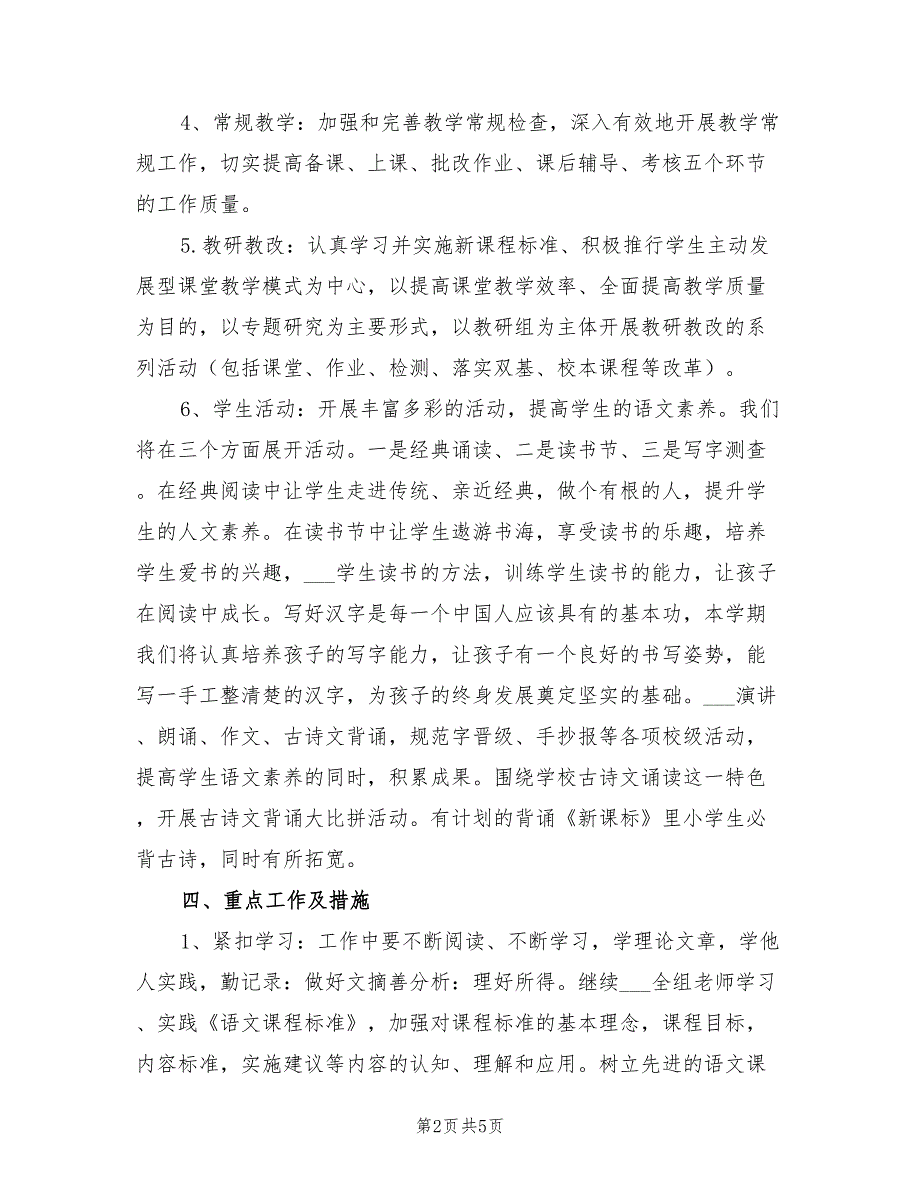 4、常规教学：加强和完善教学常规检查，深入有效地开展教学常
规工作，切实提高备课、上课、批改作业、课后辅导、考核五个环节
的工作质量。
5.教研教改：认真学习并实施新课程标准、积极推行学生主动发
展型课堂教学模式为中心，以提高课堂教学效率、全面提高教学质量
为目的，以专题研究为主要形式，以教研组为主体开展教研教改的系
列活动（包括课堂、作业、检测、落实双基、校本课程等改革）。
6、学生活动：开展丰富多彩的活动，提高学生的语文素养。我们
将在三个方面展开活动。一是经典诵读、二是读书节、三是写字测查
。在经典阅读中让学生走进传统、亲近经典，做个有根的人，提升学
生的人文素养。在读书节中让学生遨游书海，享受读书的乐趣，培养
学生爱书的兴趣，___学生读书的方法，训练学生读书的能力，让孩子
在阅读中成长。写好汉字是每一个中国人应该具有的基本功，本学期
我们将认真培养孩子的写字能力，让孩子有一个良好的书写姿势，能
写一手工整清楚的汉字，为孩子的终身发展奠定坚实的基础。___演讲
、朗诵、作文、古诗文背诵，规范字晋级、手抄报等各项校级活动，
提高学生语文素养的同时，积累成果。围绕学校古诗文诵读这一特色
，开展古诗文背诵大比拼活动。有计划的背诵《新课标》里小学生必
背古诗，同时有所拓宽。
四、重点工作及措施
1、紧扣学习：工作中要不断阅读、不断学习，学理论文章，学他
人实践，勤记录：做好文摘善分析：理好所得。继续___全组老师学习
、实践《语文课程标准》，加强对课程标准的基本理念，课程目标，
内容标准，实施建议等内容的认知、理解和应用。树立先进的语文课
第2页共5页